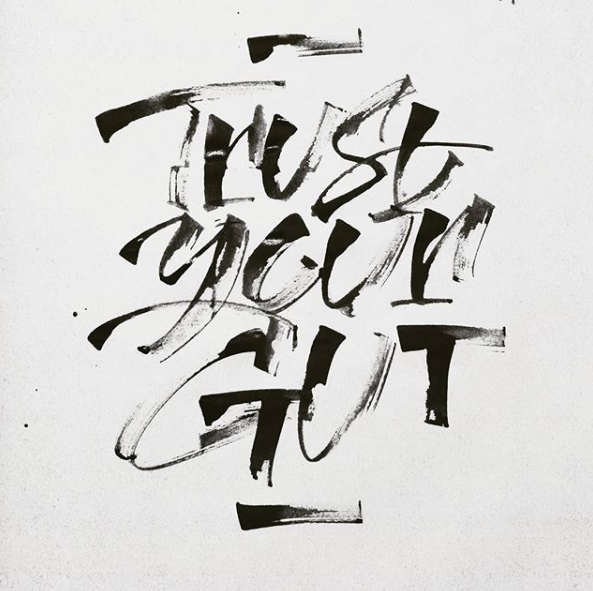 Trust
your
GUT